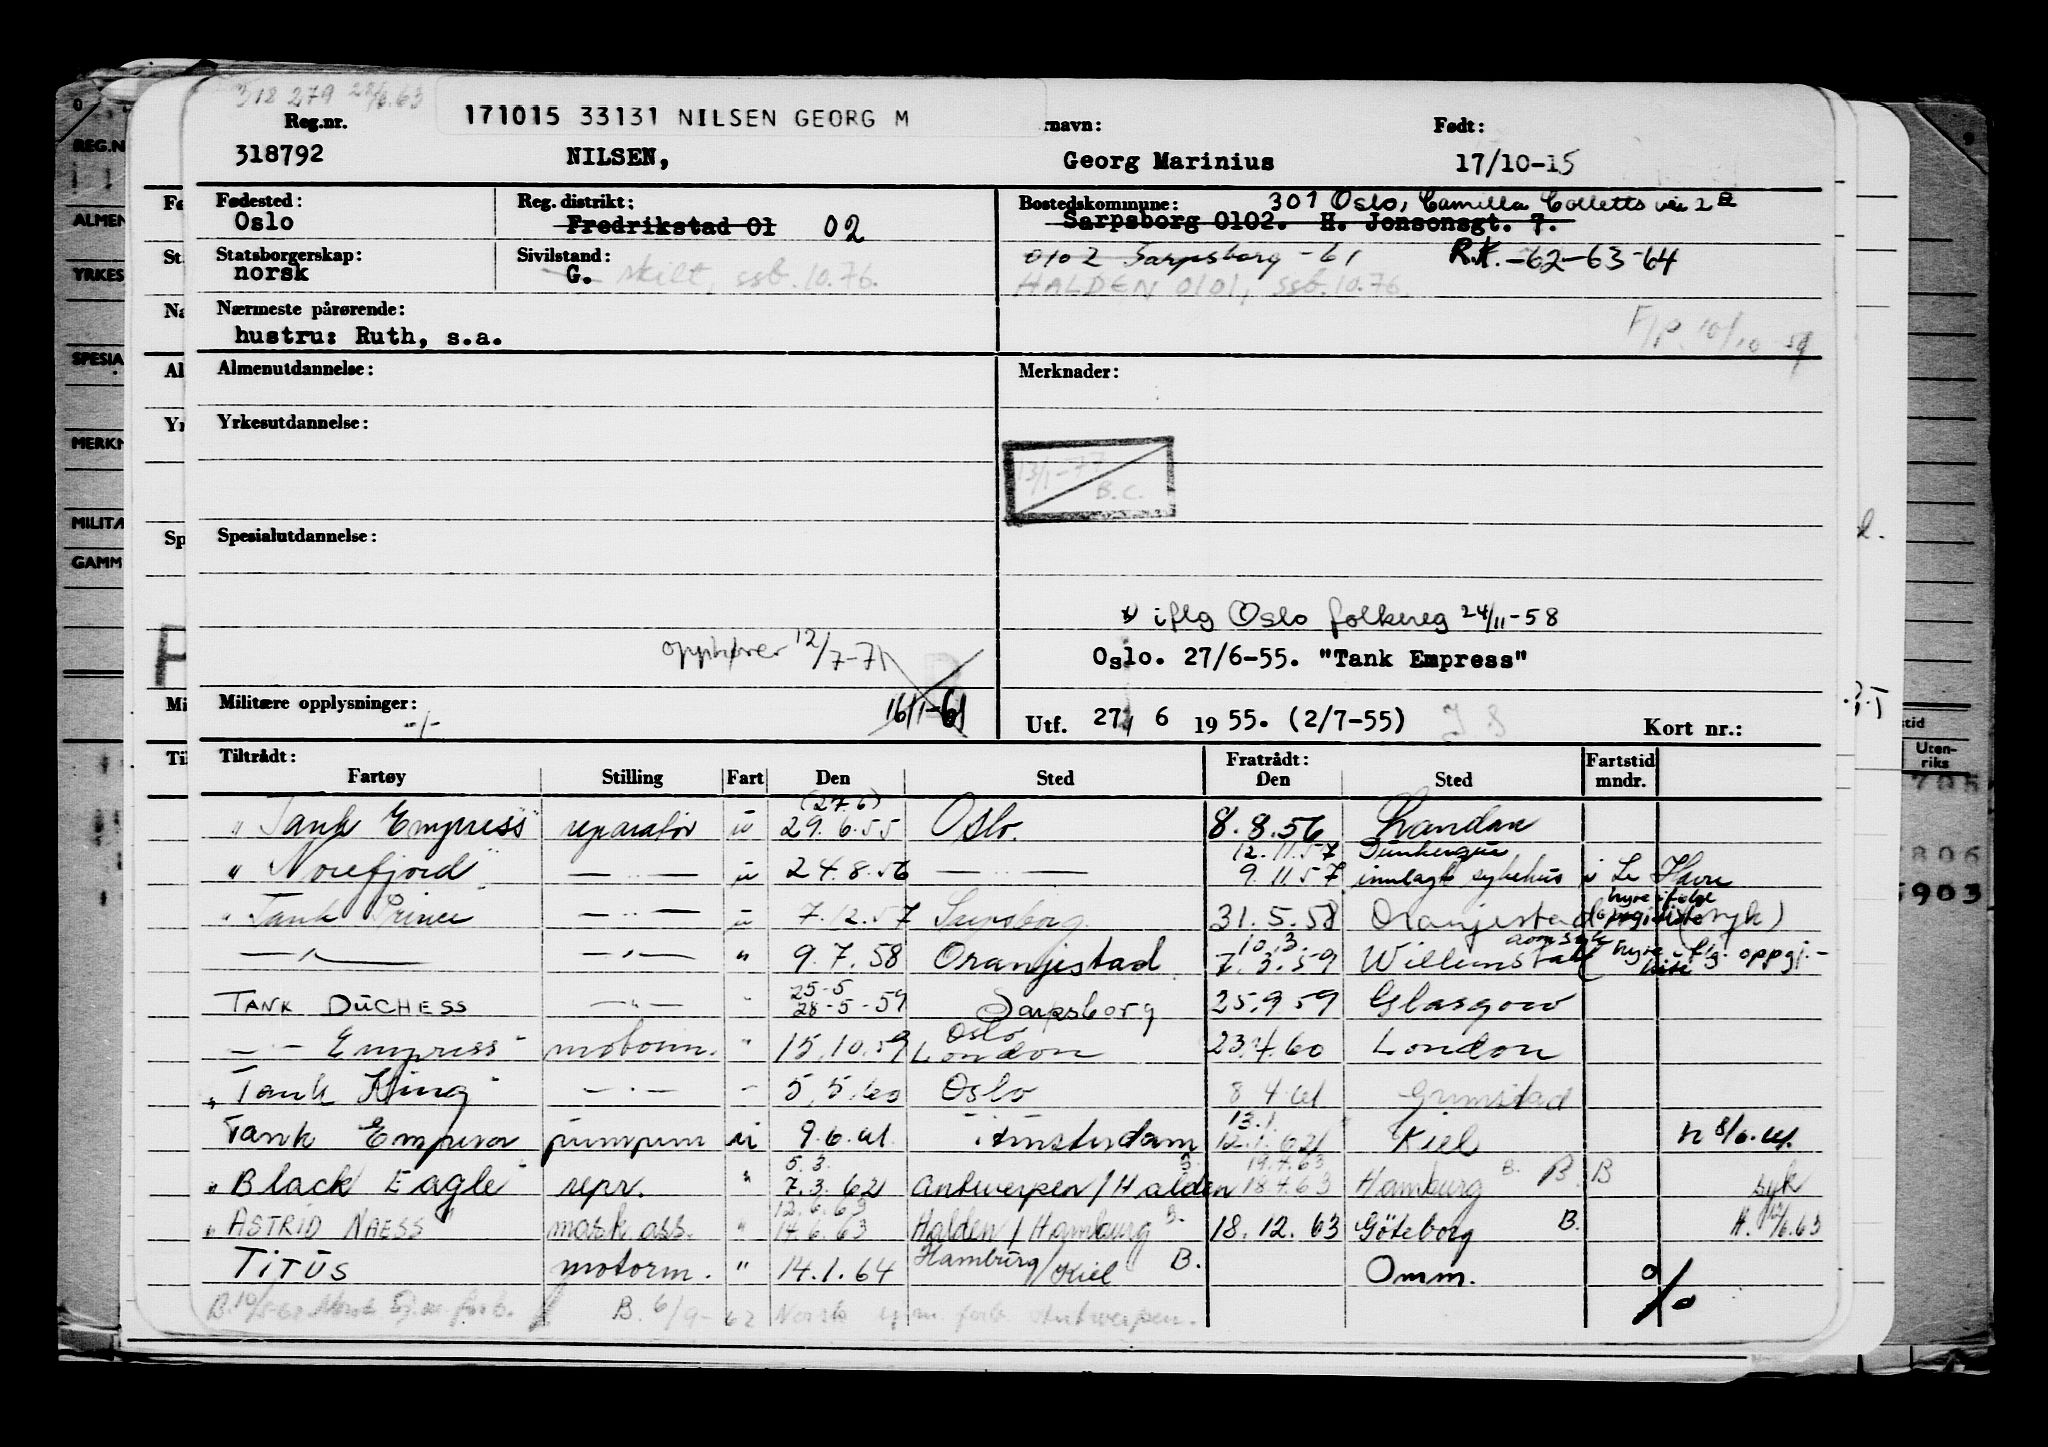 318 279 22/6.63
171015 33131 NILSEN GEORG M
Reg.nr. rnavn: Født:
318792 NILSEN, Georg Marinius 17/10-15
Fødested: Reg. distrikt: Bostedskommune: 301 Oslo, Camilla Colletts vei 2 B
Oslo Fredrikstad 01 02 Sarpsborg 0102. H. Jonsonsgt. 7.
Statsborgerskap: Sivilstand: 0102 Sarpsborg -61 R.K. -62-63-64
norsk G. skilt, ssb.10.76. HALDEN 0101, ssb.10.76.
Nærmeste pårørende:
hustru: Ruth, s.a. F/P. 10/10-59
Almenutdannelse: Merknader:
Yrkesutdannelse:
13/1-77
B.C.
Spesialutdannelse:
* iflg Oslo folkereg 24/11-58
opphører 12/7-71 Oslo. 27/6-55. "Tank Empress"
Militære opplysninger: 16/1-61
-/- Utf. 27/ 6 1955. (2/7-55) Kort nr.:
Tiltrådt: Fratrådt: Fartstid
Fartøy Stilling Fart Den Sted Den Sted mndr.
(27.6)
"Tank Empress" reparatør u 29.6.55 Oslo. 8.8.56 London
12.11.57 Dunkerque
"Norefjord" — " — u 24.8.56 — " — 9.11.57 innlagt sykehus i Le Havre
hyre ifølge
"Tank Prince — " — u 7.12.57 Sarpsborg 31.5.58 Oranjestad (syk)
10.3.
— " — — " — " 9.7.58 Oranjestad 7.3.59 Willemstad hyre flg. oppgj.-
25-5
TANK DUCHESS — " — " 28-5-59 Sarpsborg 25.9.59 Glasgow
Oslo
— " — Empress" motorm. " 15.10.59 London 23.4.60 London
"Tank King" — " — " 5.5.60 Oslo 8.4.61 Grimstad
13.1.
Tank Emperor pumpem u 9.6.61 Amsterdam 12.1.62 Kiel H 8/6.61.
5.3. 19.4.63
"Black Eagle" repr. " 7.3.62 Antwerpen/Halden 18.4.63 Hamburg B. B. B syk
12.6.63
"ASTRID NAESS" mask.ass. " 14.6.63 Halden/Hamburg B. 18.12.63 Göteborg B. H. 12/6.63
TITUS motorm. " 14.1.64 Hamburg/Kiel B. Omm. %
B. 6/9-62 Norsk sjøm. forb. Antwerpen.